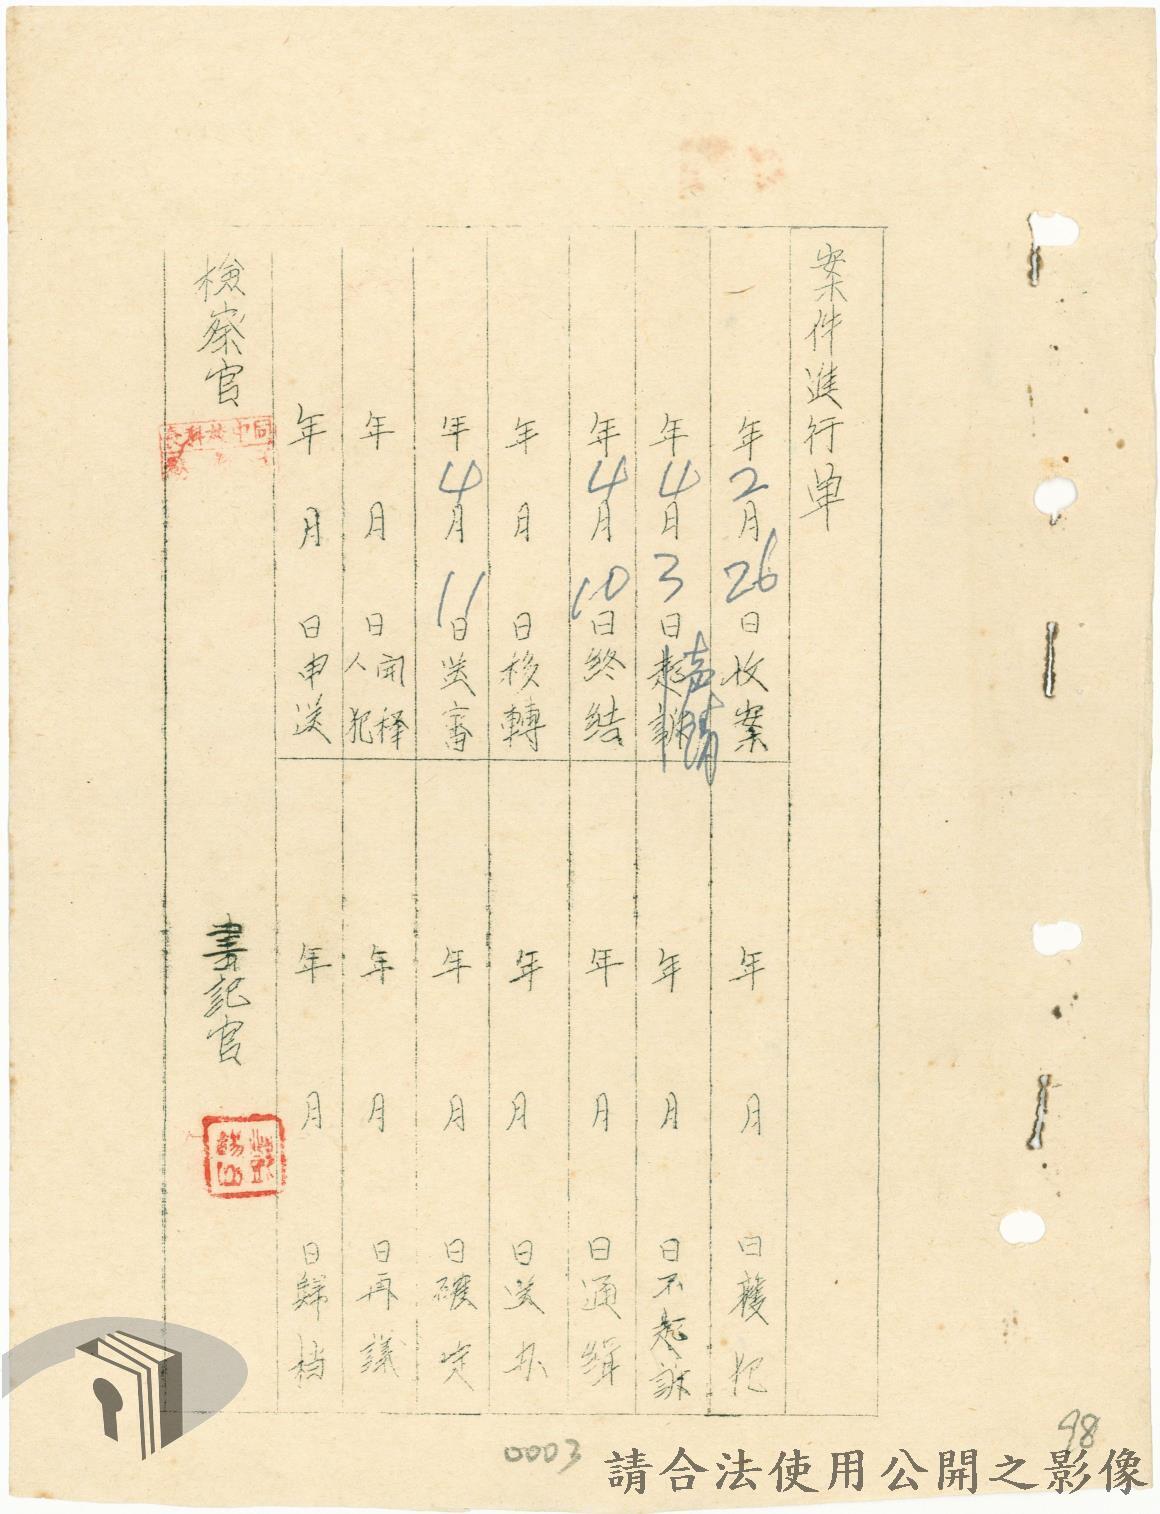 案件進行单
年2月26日收案
年4月3日起訴声請
年4月10日終結
年 月 日移轉
年4月11日送審
年 月 日開釋人犯
年 月 日申送
年 月 日獲犯
年 月 日不起訴
年 月 日通緝
年 月 日送办
年 月 日確定
年 月 日再議
年 月 日歸档
檢察官
書記官
0003
98
請合法使用公開之影像